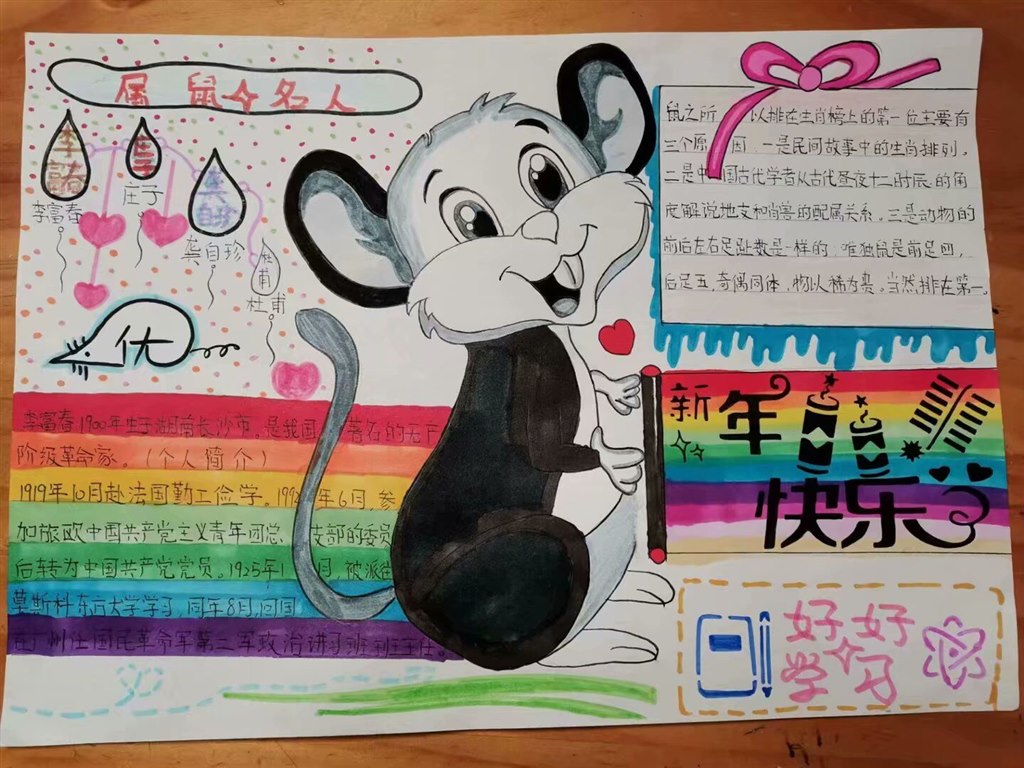 属鼠名人
李富春
庄子
龚自珍
杜甫
李富春
庄子
龚自珍
杜甫
优
李富春1900年生于湖南长沙市。是我国著名的无产
阶级革命家。(个人简介)
1919年10月赴法国勤工俭学。1922年6月,参
加旅欧中国共产党主义青年团总支部的委员
后转为中国共产党党员。1925年1月,被派往
莫斯科东方大学学习,同年8月回国
在广州任国民革命军第二军政治讲习班副主任。
鼠之所以排在生肖榜上的第一位主要有
三个原因,一是民间故事中的生肖排列,
二是中国古代学者从古代昼夜十二时辰的角
度解说地支和肖兽的配属关系。三是动物的
前后左右足趾数是一样的,唯独鼠是前足四,
后足五,奇偶同体,物以稀为贵。当然排在第一。
新年
快乐
好好
学习